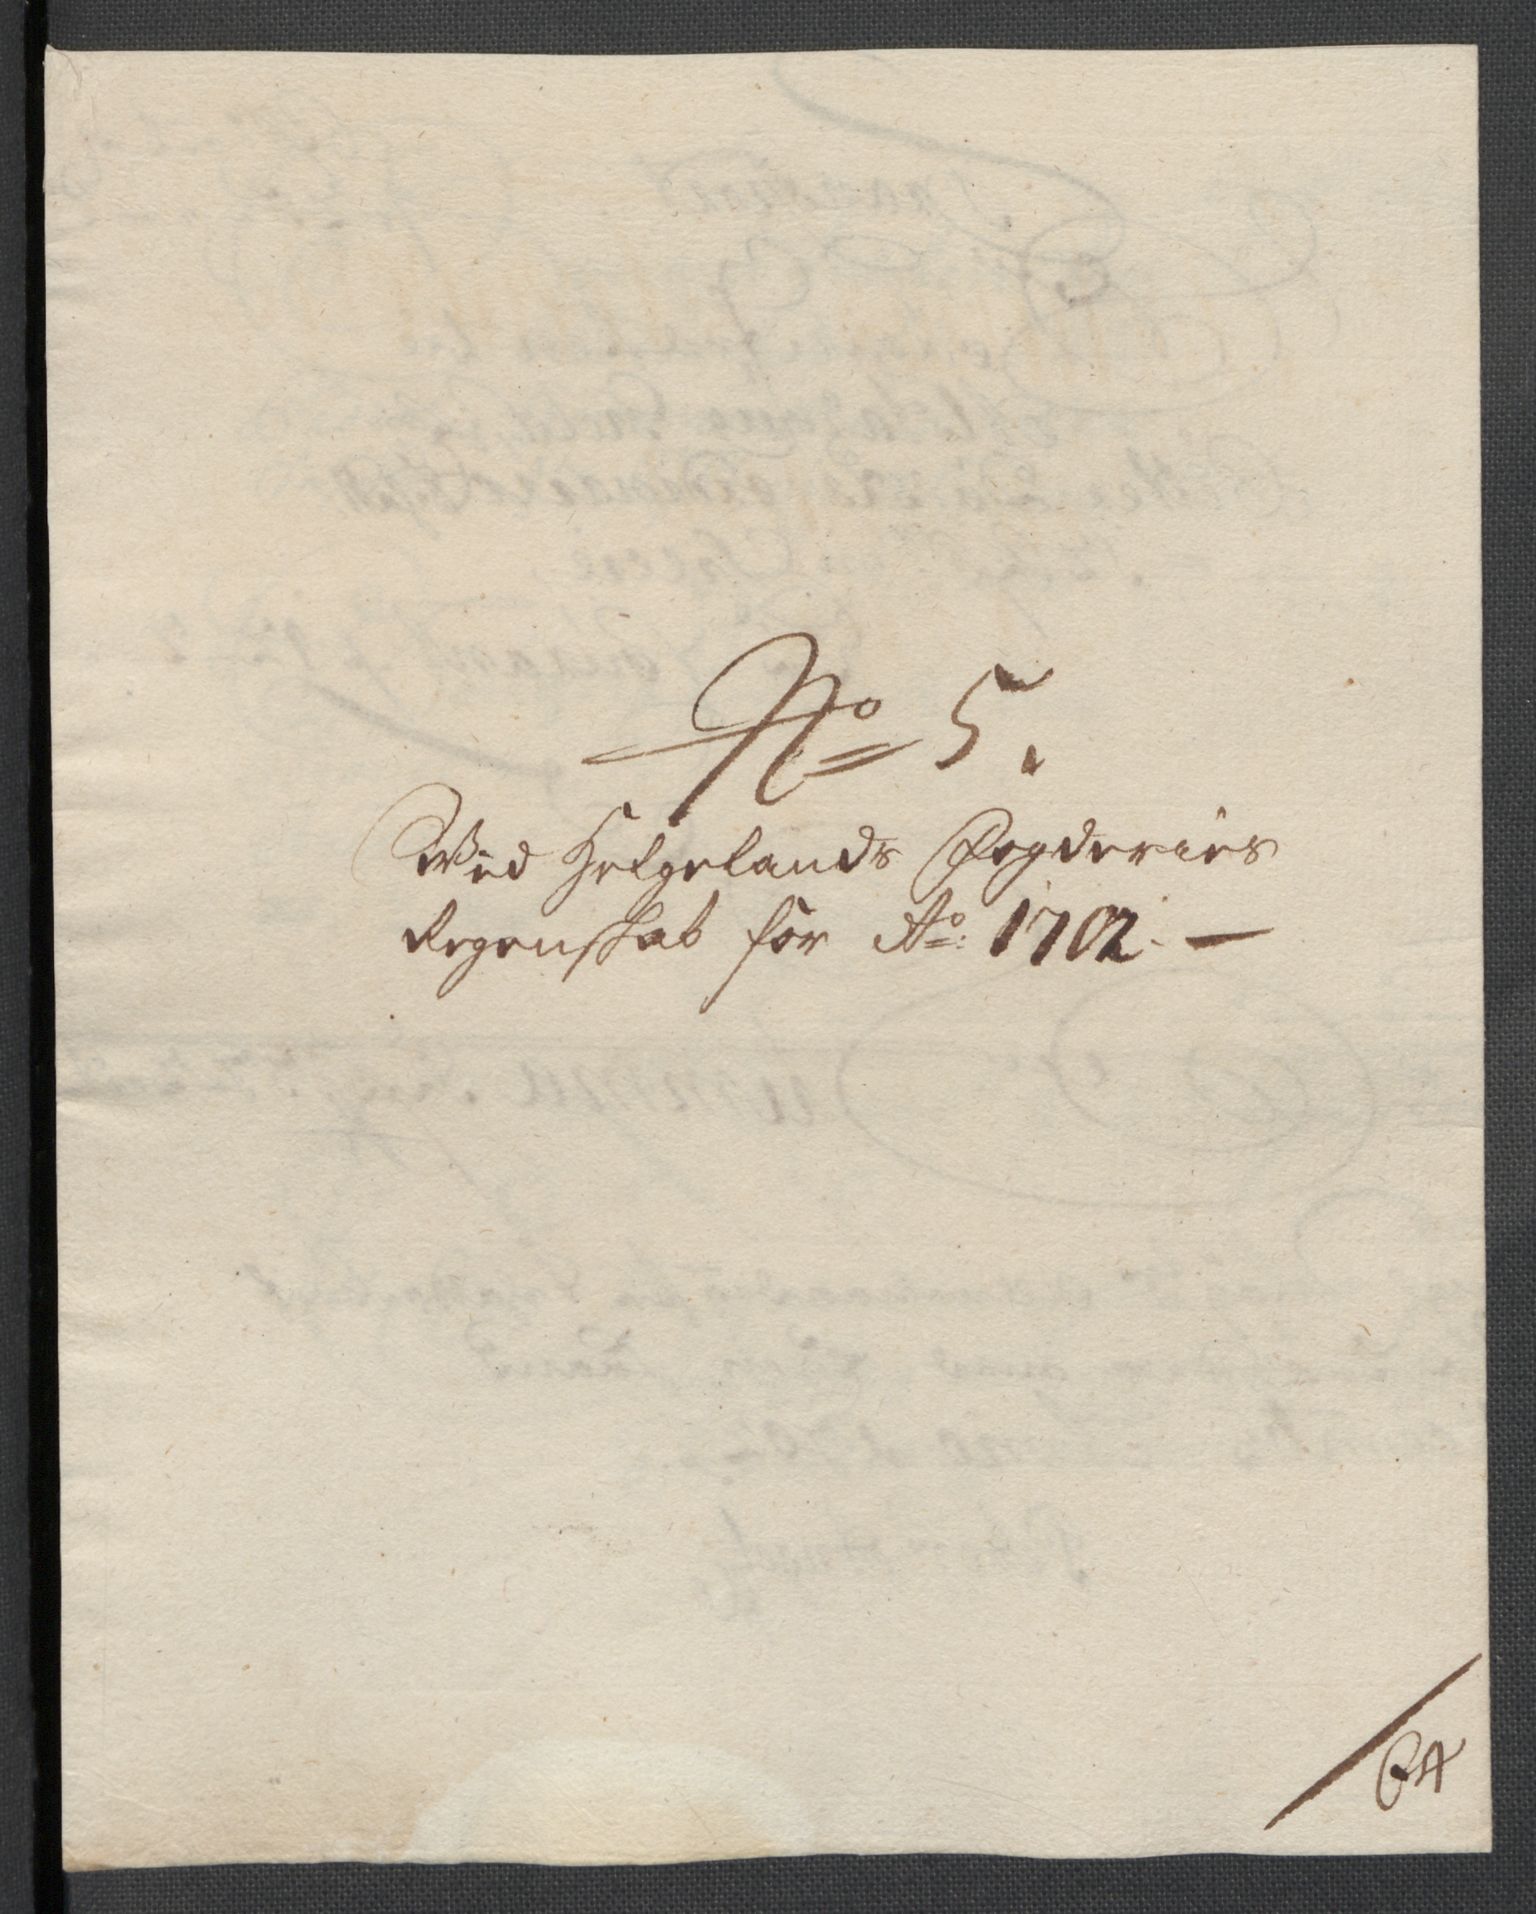 No 5.
Wed Helgelands Fogderies
Regenskab for Ao: 1702. —
64